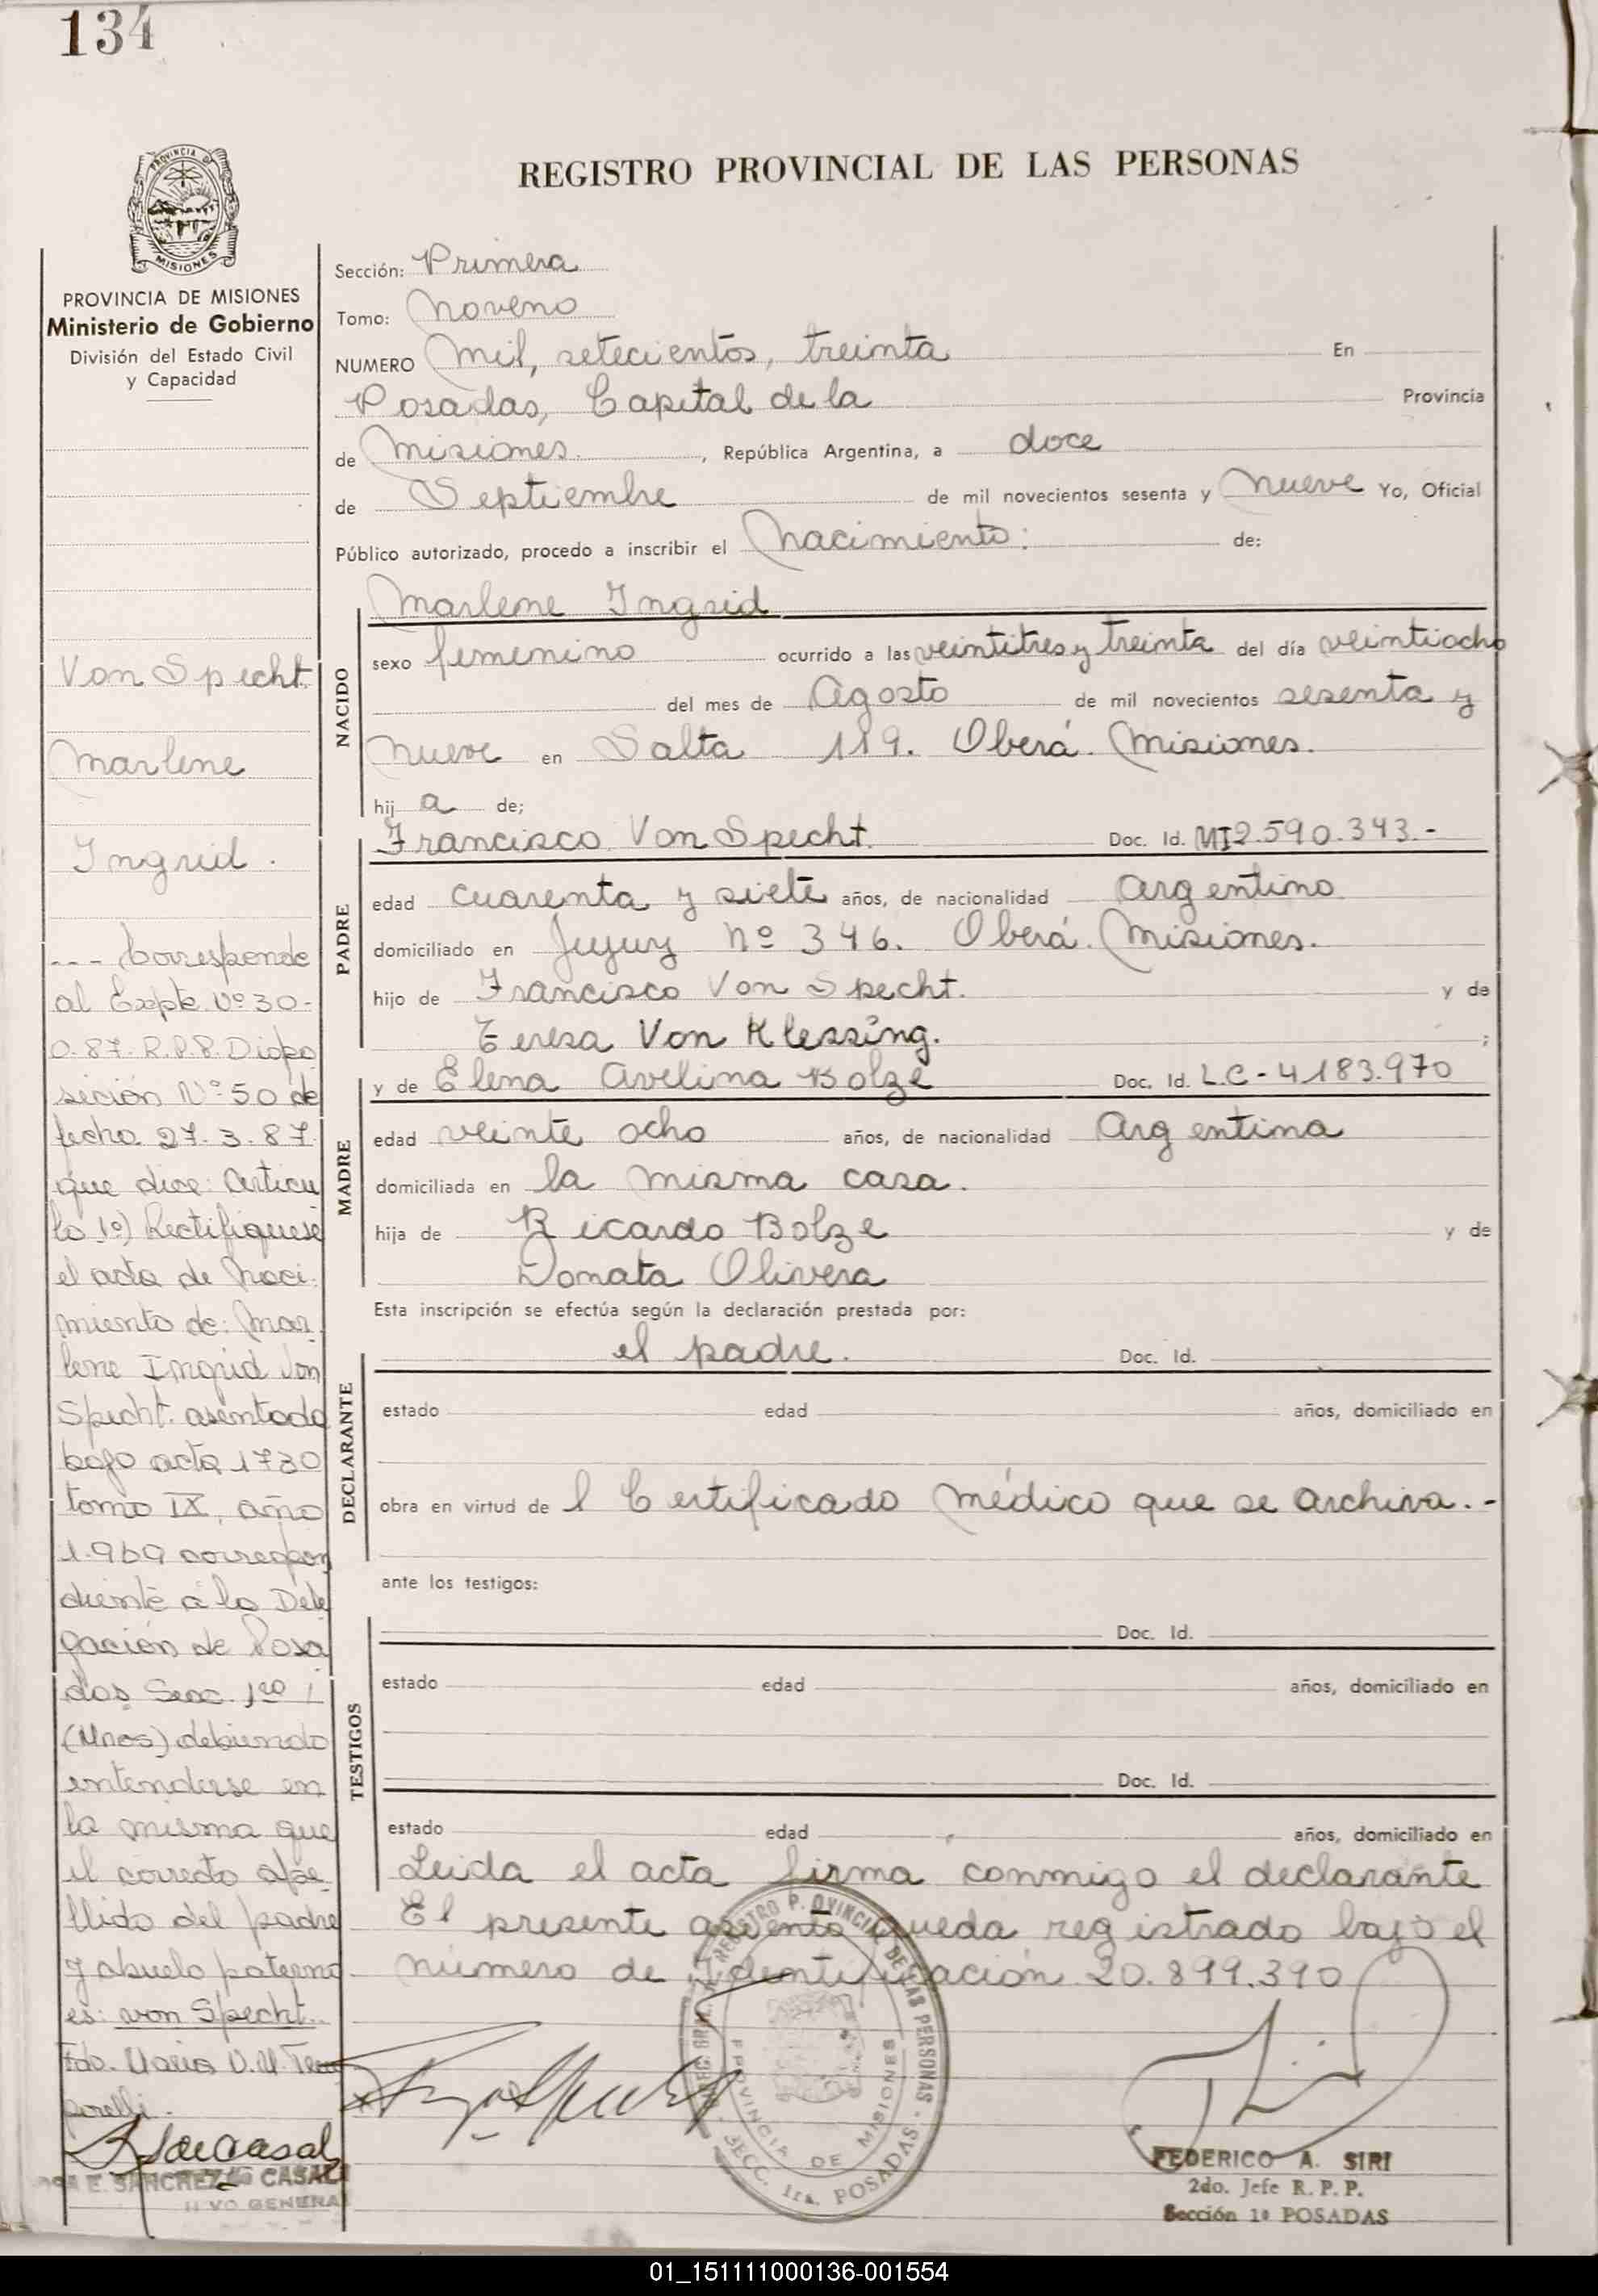 134
PROVINCIA D
MISIONES
PROVINCIA DE MISIONES
Ministerio de Gobierno
División del Estado Civil
y Capacidad
REGISTRO PROVINCIAL DE LAS PERSONAS
Sección: Primera
Tomo: Noveno
NUMERO Mil, setecientos, treinta En
Posadas, Capital de la Provincia
de Misiones. , República Argentina, a doce
de Septiembre de mil novecientos sesenta y nueve Yo, Oficial
Público autorizado, procedo a inscribir el Nacimiento: de:
Marlene Ingrid
NACIDO
sexo femenino ocurrido a las veintitres y treinta del día veintiocho
del mes de Agosto de mil novecientos sesenta y
nueve en Salta 119. Oberá. Misiones.
hij a de;
PADRE
Francisco Von Specht. Doc. Id. MI 2.590.343.-
edad cuarenta y siete años, de nacionalidad Argentino
domiciliado en Jujuy Nº 346. Oberá. Misiones.
hijo de Francisco Von Specht. y de
Teresa Von Klessing. ;
MADRE
y de Elena Avelina Bolze Doc. Id. L.C-4183.970
edad veinte ocho años, de nacionalidad Argentina
domiciliada en la misma casa.
hija de Ricardo Bolze y de
Donata Olivera
Esta inscripción se efectúa según la declaración prestada por:
DECLARANTE
el padre. Doc. Id.
estado edad años, domiciliado en
obra en virtud de l Certificado médico que se archiva.-
ante los testigos:
TESTIGOS
Doc. Id.
estado edad años, domiciliado en
Doc. Id.
estado edad años, domiciliado en
Leida el acta firma conmigo el declarante
El presente asiento queda registrado bajo el
número de Identificación 20.899.390
Von Specht.
Marlene
Ingrid.
--- Corresponde
al Expte. Nº 30-
0.87. R.P.P. Dispo
sición Nº 50 de
fecha 27.3.87.
que dice: Articu
lo 1º) Rectifiquese
el acta de Naci-
miento de: Mar-
lene Ingrid Von
Specht. asentada
bajo acta 1730
tomo IX, año
1.969 correspon
diente a la Dele
gación de Posa
das Secc. 1ra
(Mnes) debiendo
entenderse en
la misma que
el correcto ape-
llido del padre
y abuelo paterno
es: von Specht.
Fdo. Maria
SANCHEZ CASAL
PROVINCIA DE MISIONES
SECC. 1ra. POSADAS
FEDERICO A. SIRI
2do. Jefe R. P. P.
Sección 1ª POSADAS
01_151111000136-001554